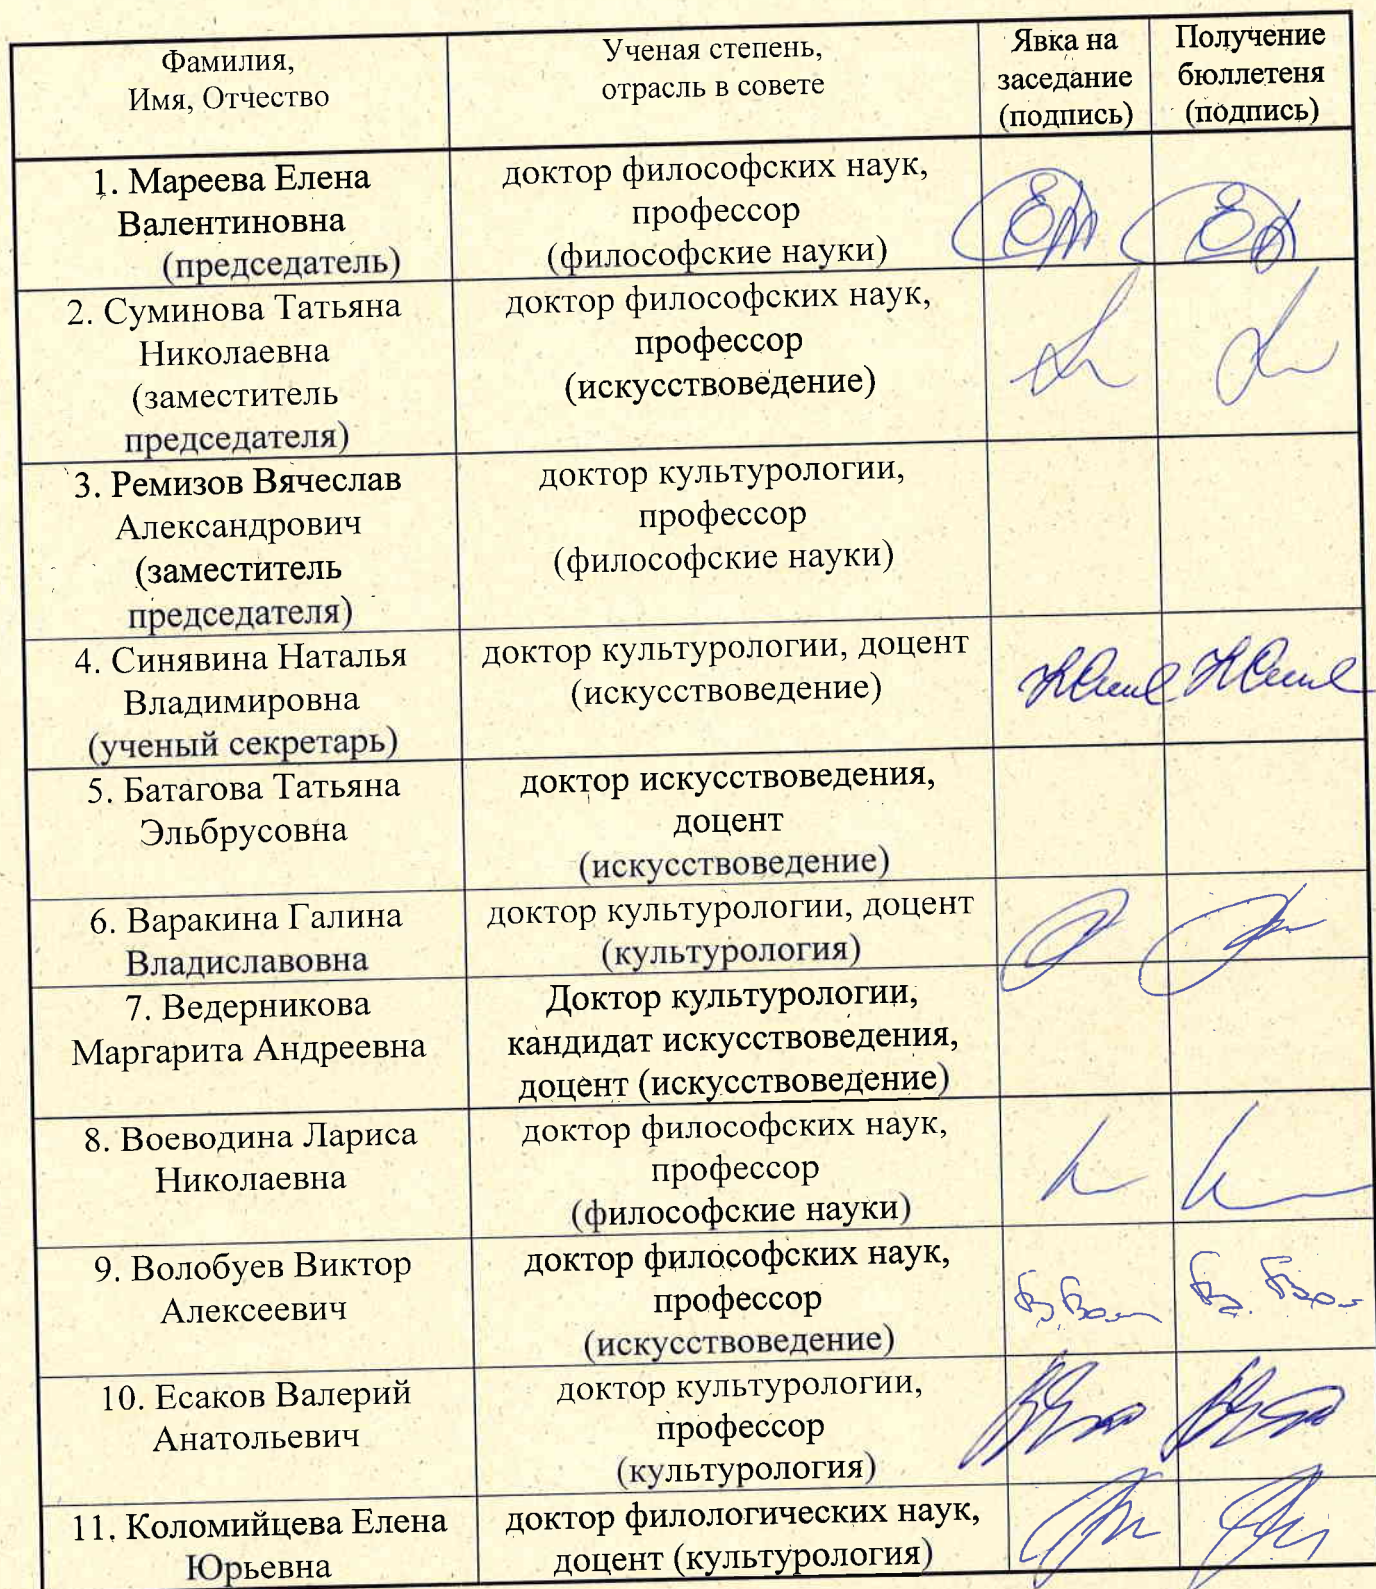 Фамилия,
Имя, Отчество
Ученая степень,
отрасль в совете
Явка на
заседание
(подпись)
Получение
бюллетеня
(подпись)
1. Мареева Елена
Валентиновна
(председатель)
доктор философских наук,
профессор
(философские науки)
2. Суминова Татьяна
Николаевна
(заместитель
председателя)
доктор философских наук,
профессор
(искусствоведение)
3. Ремизов Вячеслав
Александрович
(заместитель
председателя)
доктор культурологии,
профессор
(философские науки)
4. Синявина Наталья
Владимировна
(ученый секретарь)
доктор культурологии, доцент
(искусствоведение)
5. Батагова Татьяна
Эльбрусовна
доктор искусствоведения,
доцент
(искусствоведение)
6. Варакина Галина
Владиславовна
доктор культурологии, доцент
(культурология)
7. Ведерникова
Маргарита Андреевна
Доктор культурологии,
кандидат искусствоведения,
доцент (искусствоведение)
8. Воеводина Лариса
Николаевна
доктор философских наук,
профессор
(философские науки)
9. Волобуев Виктор
Алексеевич
доктор философских наук,
профессор
(искусствоведение)
10. Есаков Валерий
Анатольевич
доктор культурологии,
профессор
(культурология)
11. Коломийцева Елена
Юрьевна
доктор филологических наук,
доцент (культурология)